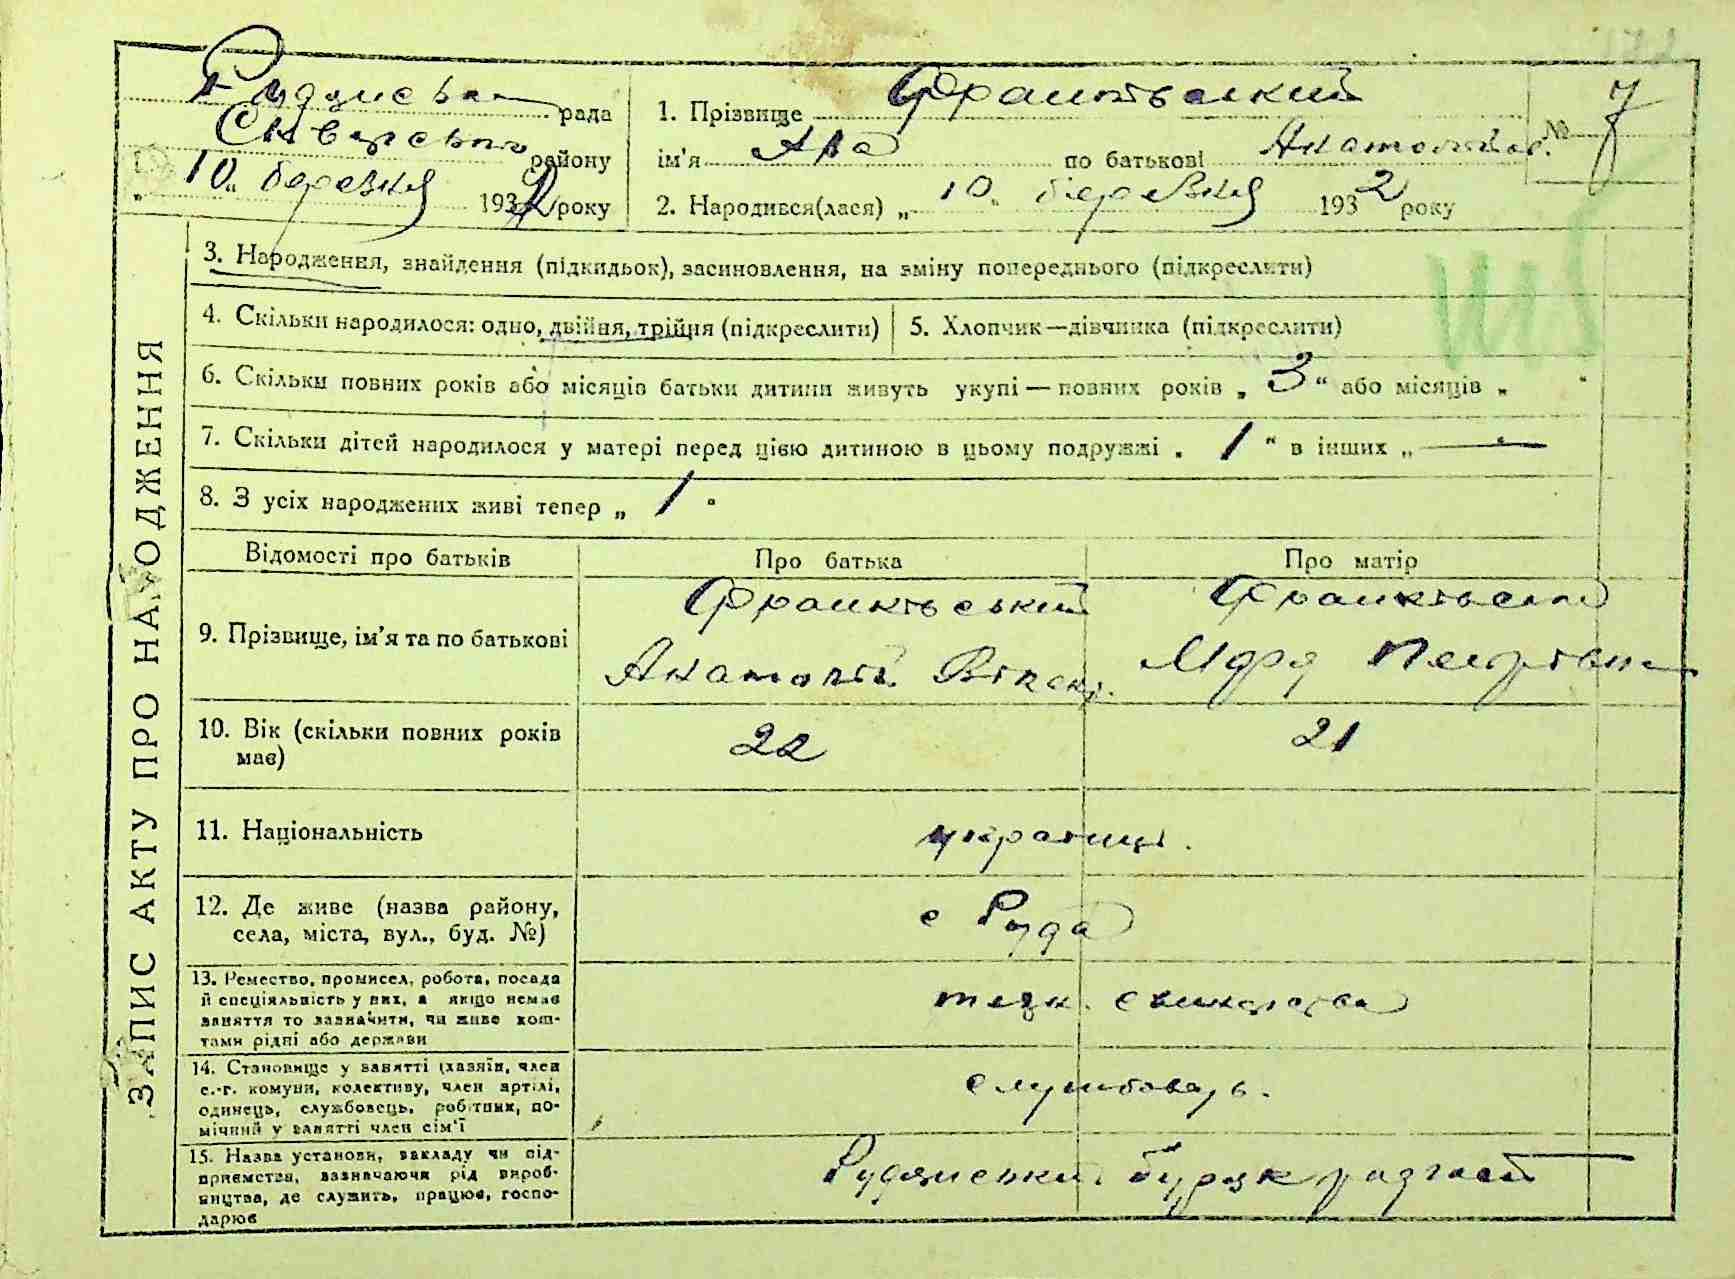 Рудянська рада
Сквирського району
„10„ березня 1932 року
1. Прізвище Франковський
ім'я Ада по батькові Анатоліїв.
№ 7
2. Народився(лася) „10„ березня 1932 року
ЗАПИС АКТУ ПРО НАРОДЖЕННЯ
3. Народження, знайдення (підкидьок), засиновлення, на зміну попереднього (підкреслити)
4. Скільки народилося: одно, двійня, трійня (підкреслити)
5. Хлопчик—дівчинка (підкреслити)
6. Скільки повних років або місяців батьки дитини живуть укупі — повних років „3“ або місяців „ “
7. Скільки дітей народилося у матері перед цією дитиною в цьому подружжі „1“ в інших „—“
8. З усіх народжених живі тепер „1“
Відомості про батьків
Про батька
Про матір
9. Прізвище, ім'я та по батькові
Франковський
Анатолій
Франковська
Петрівна
10. Вік (скільки повних років
має)
22
21
11. Національність
українці.
12. Де живе (назва району,
села, міста, вул., буд. №)
с Руда
13. Ремество, промисел, робота, посада
й спеціяльність у них, а якщо немає
заняття то зазначити, чи живе кош-
тами рідні або держави
техн. свинарства
14. Становище у занятті (хазяїн, член
с.-г. комуни, колективу, член артілі,
одинець, службовець, робітник, по-
мічний у занятті член сім'ї
службовець.
15. Назва установи, закладу чи під-
приємства, зазначаючи рід вироб-
ництва, де служить, працює, госпо-
дарює
Рудянський буряк радгосп